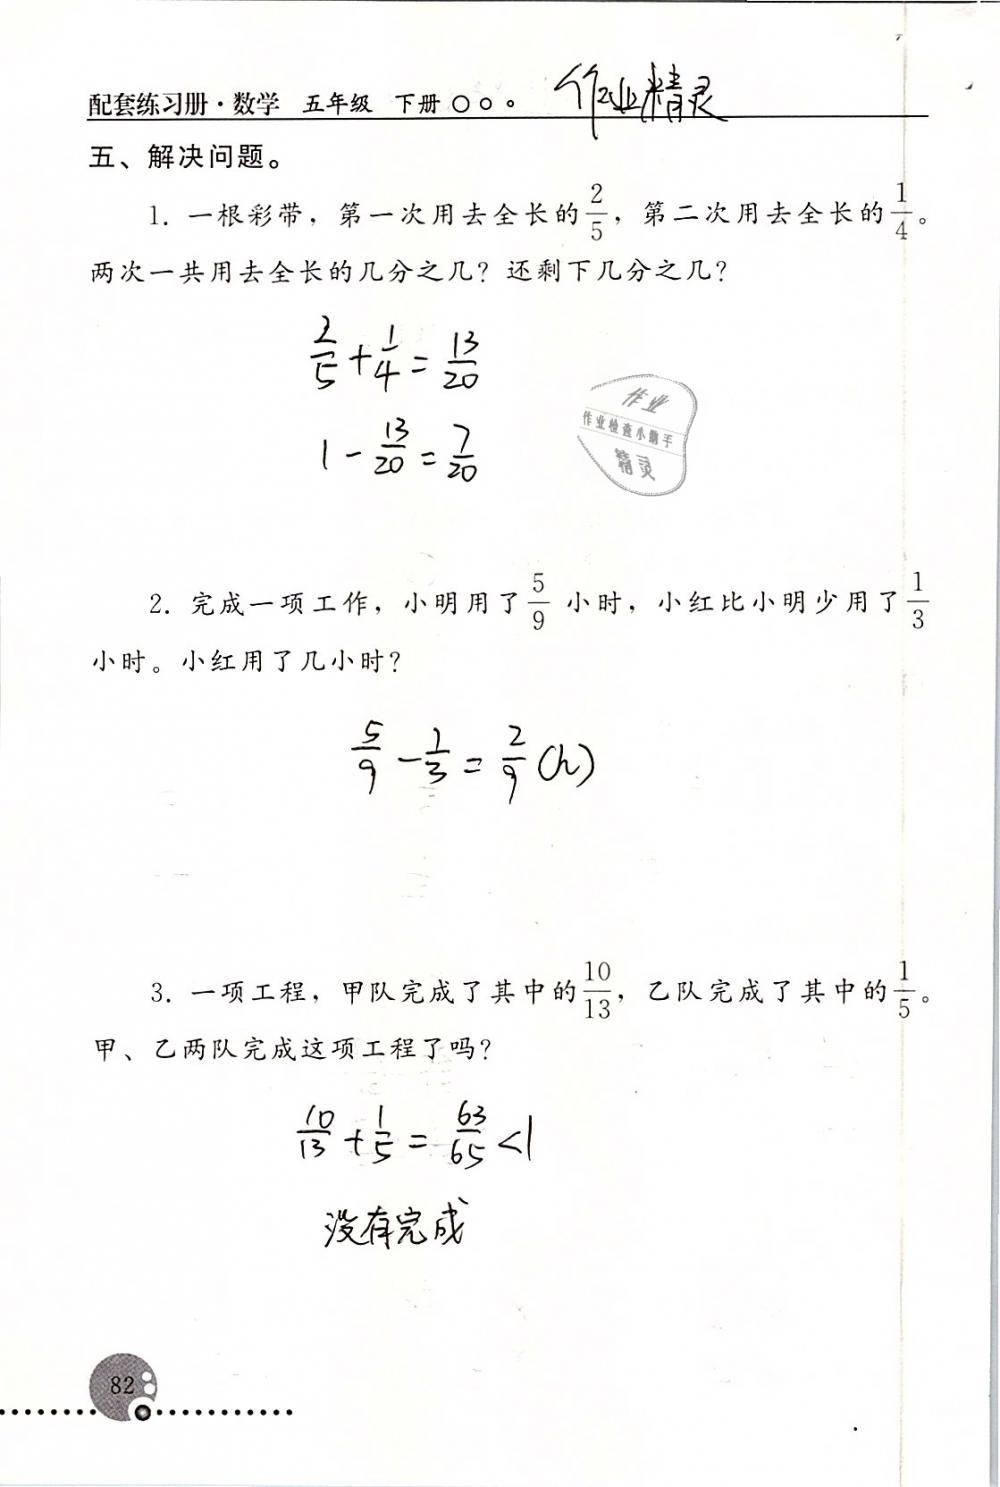 配套练习册·数学 五年级 下册 作业精灵
五、解决问题。
1. 一根彩带，第一次用去全长的2/5，第二次用去全长的1/4。
两次一共用去全长的几分之几？还剩下几分之几？
2/5+1/4=13/20
1-13/20=7/20
作业
作业检查小助手
精灵
2. 完成一项工作，小明用了5/9小时，小红比小明少用了1/3
小时。小红用了几小时？
5/9-1/3=2/9(h)
3. 一项工程，甲队完成了其中的10/13，乙队完成了其中的1/5。
甲、乙两队完成这项工程了吗？
10/13+1/5=63/65<1
没有完成
82